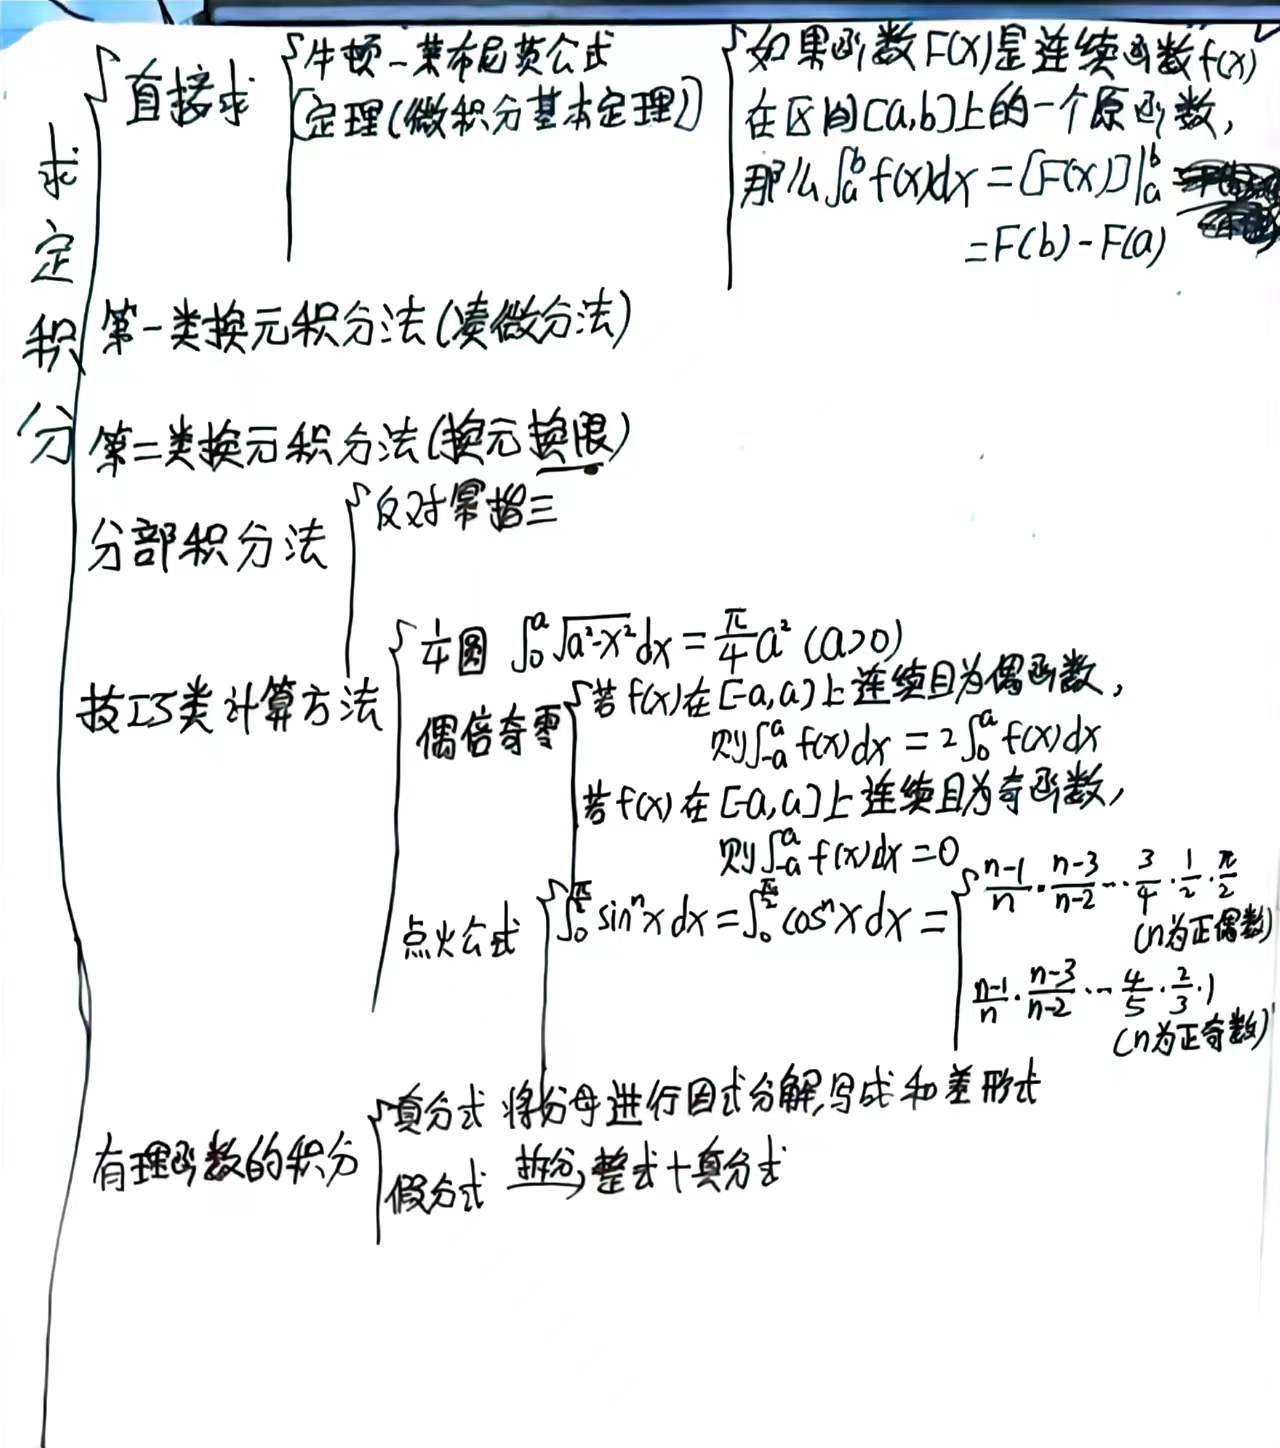 求定积分
直接求
牛顿-莱布尼茨公式
[定理(微积分基本定理)]
如果函数F(x)是连续函数f(x)
在区间[a,b]上的一个原函数,
那么∫_a^b f(x)dx=[F(x)]|_a^b
=F(b)-F(a)
第一类换元积分法(凑微分法)
第二类换元积分法(换元换限)
分部积分法
反对幂指三
技巧类计算方法
1/4圆 ∫_0^a √(a²-x²)dx=π/4 a² (a>0)
偶倍奇零
若f(x)在[-a,a]上连续且为偶函数,
则∫_{-a}^a f(x)dx=2∫_0^a f(x)dx
若f(x)在[-a,a]上连续且为奇函数,
则∫_{-a}^a f(x)dx=0
点火公式
∫_0^{π/2} sinⁿx dx=∫_0^{π/2} cosⁿx dx=
(n-1)/n·(n-3)/(n-2)…3/4·1/2·π/2
(n为正偶数)
(n-1)/n·(n-3)/(n-2)…4/5·2/3·1
(n为正奇数)
有理函数的积分
真分式 将分母进行因式分解,写成和差形式
假分式 拆分→整式+真分式